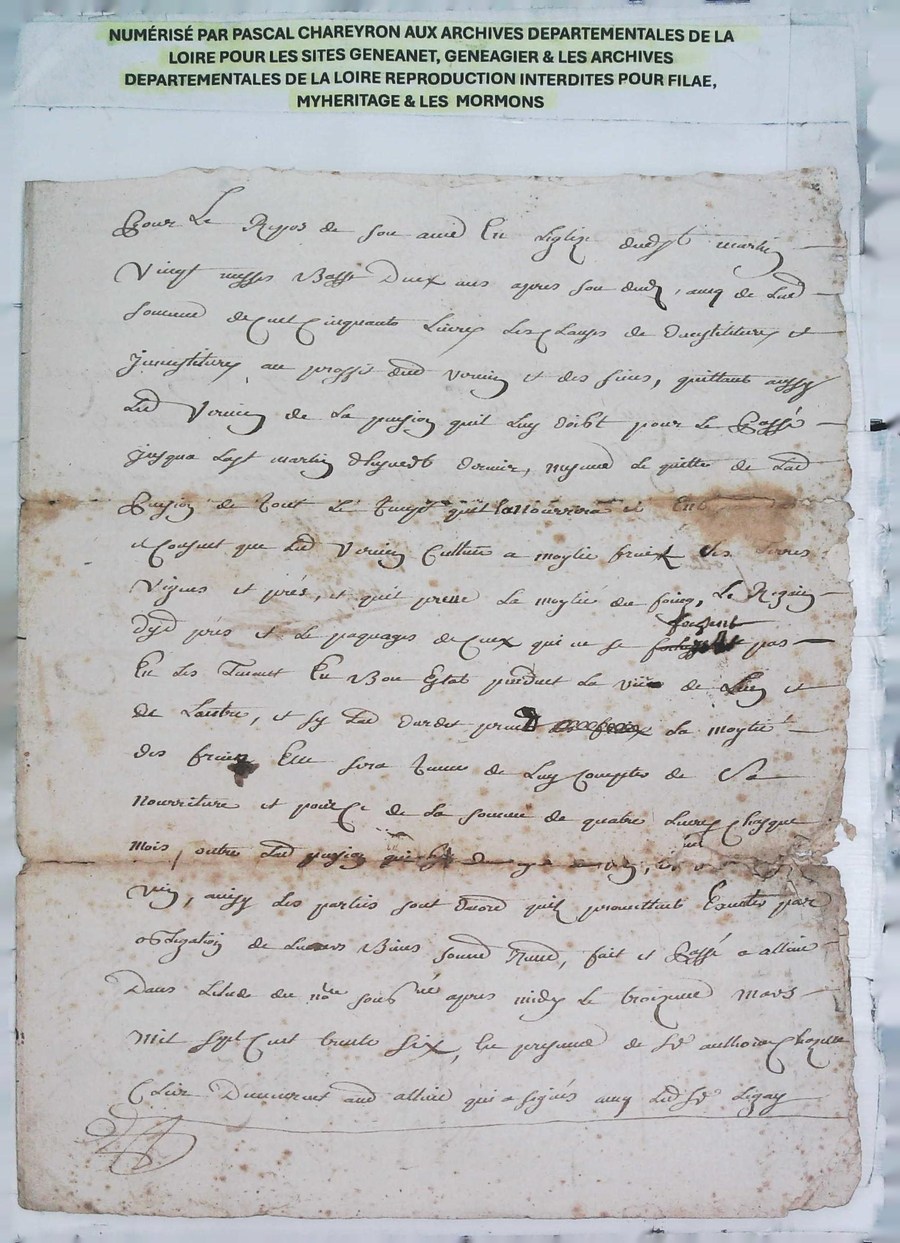 NUMÉRISÉ PAR PASCAL CHAREYRON AUX ARCHIVES DEPARTEMENTALES DE LA
LOIRE POUR LES SITES GENEANET, GENEAGIER & LES ARCHIVES
DEPARTEMENTALES DE LA LOIRE REPRODUCTION INTERDITES POUR FILAE,
MYHERITAGE & LES MORMONS
Pour Le Repos de son ame En Leglize dudt st martin
Vingt messes Basse Deux ans apres son , avec de Lad
somme de Cent Cinquante Livres Les Clauses de et
au proffit dud Vernin et des siens, quittant aussy
Led Vernin de La pension quil Luy doibt pour Le Passé
jusqua La st martin dernier, Le quitte de Lad
Pension de Tout Le Temps quil La Nourrira
et Convenu que Led Vernin Cultive a moytié fruit Les Terres
Vignes et prés, et quil prene La moytié du foing, Le
desd prés et Le paquages de Ceux qui ne se fauchent pas
En Les Tenant En Bon Estat pendant La Vie de Luy et
de Lautre, et sy Lad Vardet prend La moytié
des fruits Elle sera Tenue de Luy Compter de Sa
Nourriture et pour Ce de La somme de quatre Livres Chasque
Mois, outre Lad pension
, ainsy Les parties sont daccord quils promettent Executer par
obligation de Leurs Biens , fait et Passé a allieu
Dans Letude du nore sousné apres midy Le troizieme Mars
Mil sept Cent trente six, En presence de Sr anthoine
Clerc Demeurant aud allieu qui a signés avec Led Sr Ligay